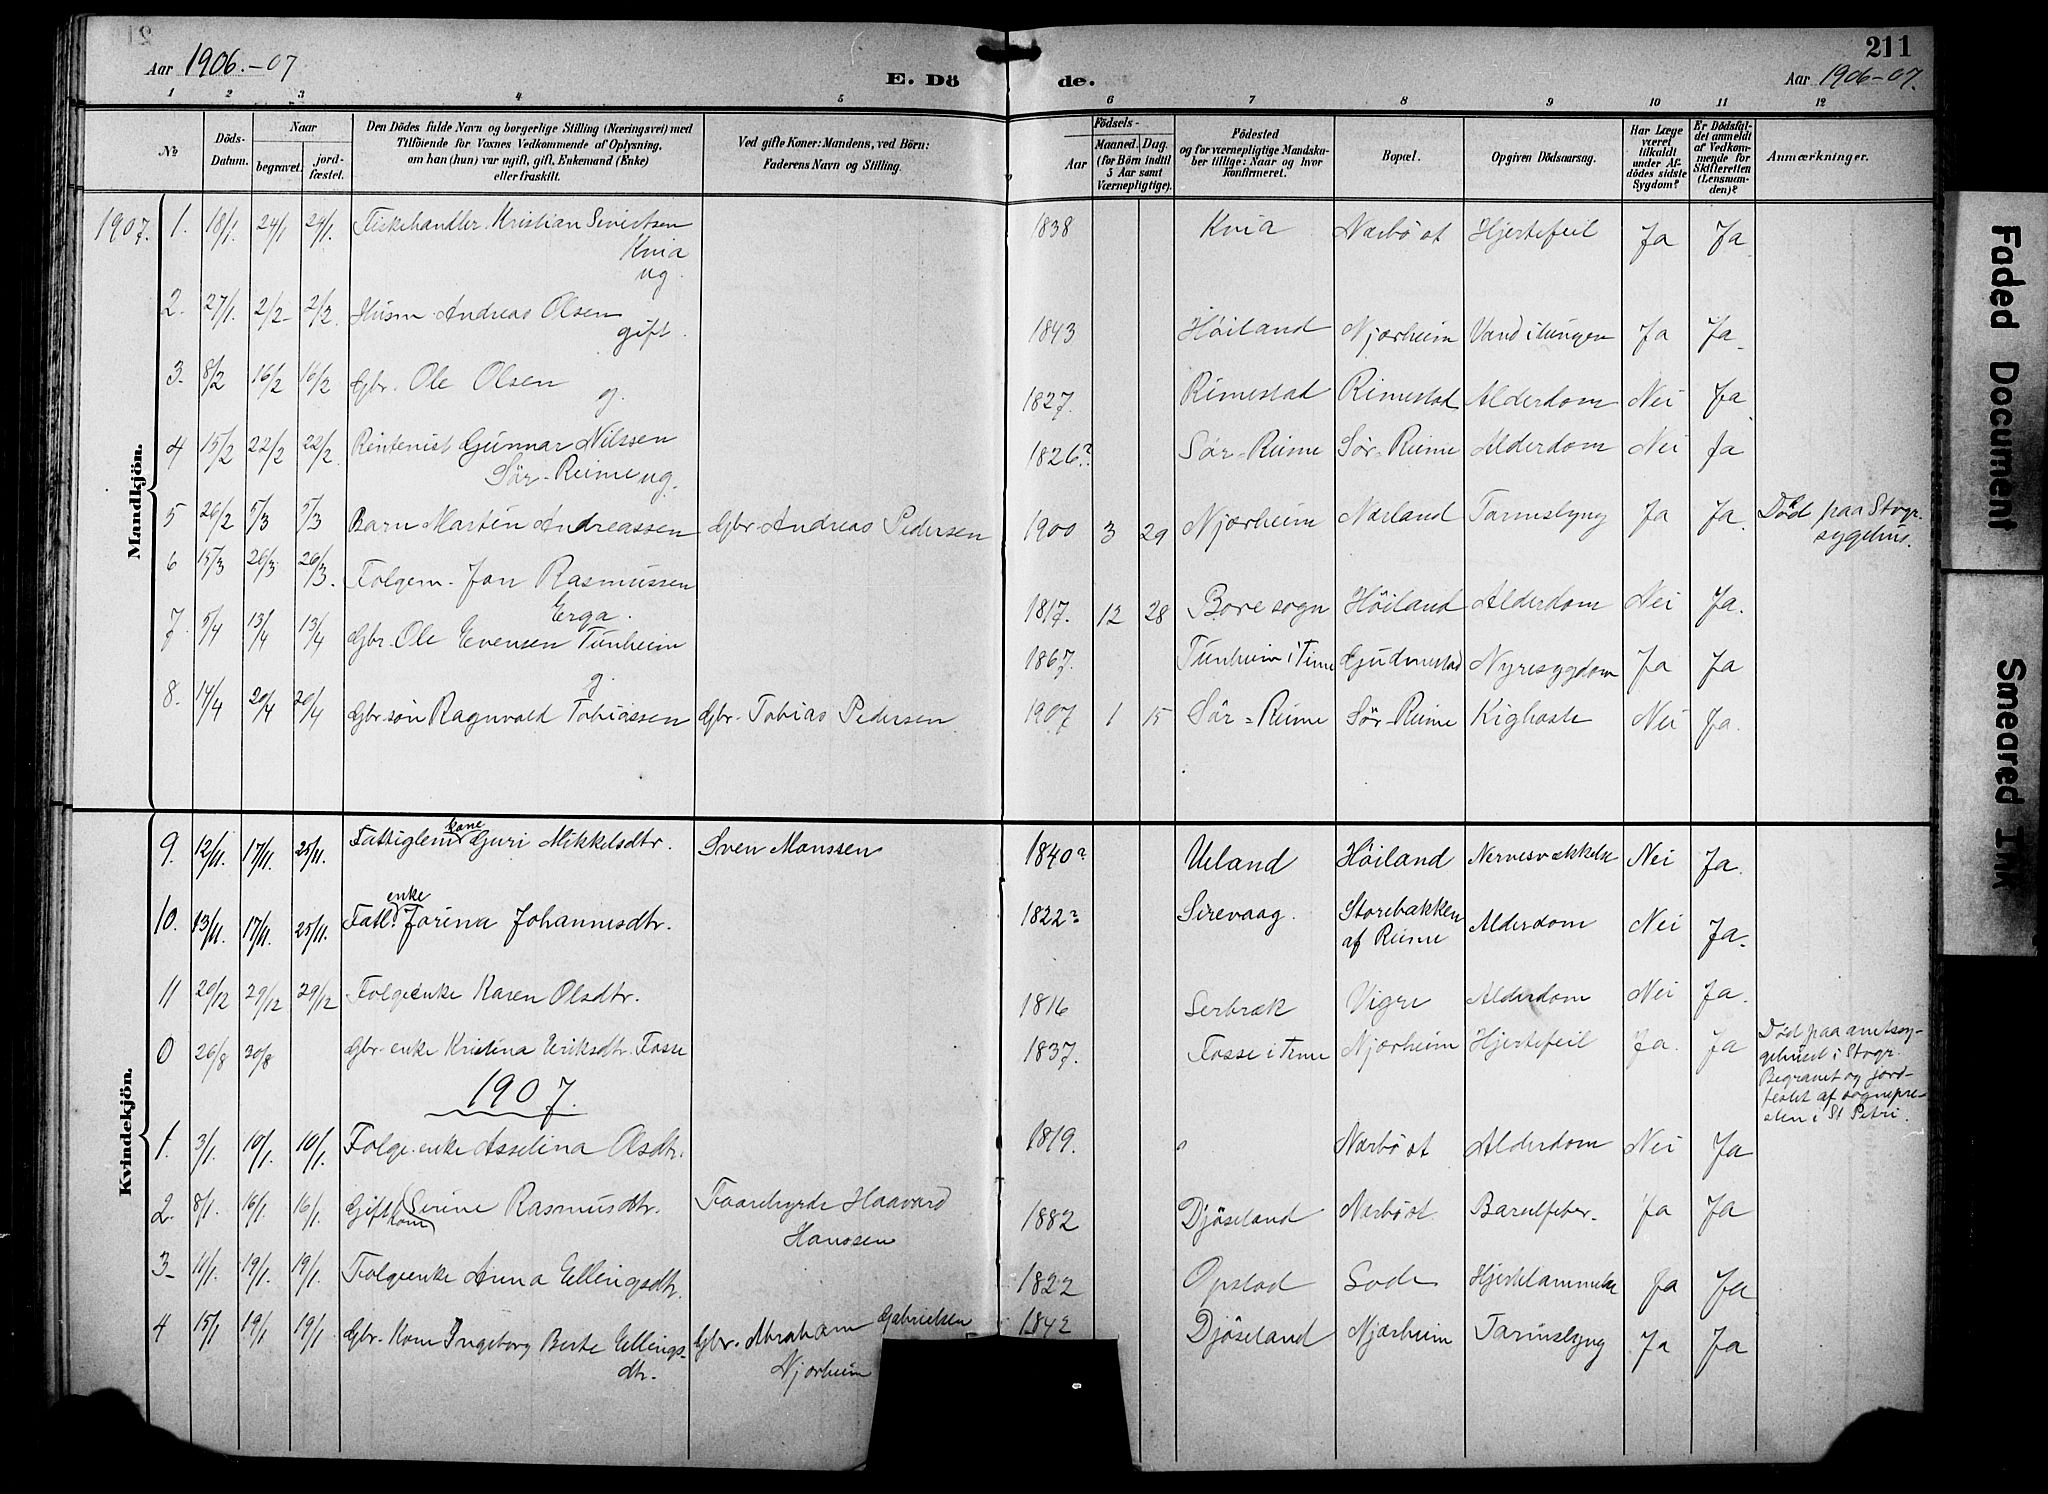 Aar 1906.-07
E. Dö de.
211
Aar 1906-07.
1 2 3 4 5 6 7 8 9 10 11 12
No
Döds-Datum.
Naar
begravet.
jord-fæstet.
Den Dödes fulde Navn og borgerlige Stilling (Næringsvei) med
Tilföiende for Voxnes Vedkommende af Oplysning,
om han (hun) var ugift, gift, Enkemand (Enke)
eller fraskilt.
Ved gifte Koner: Mandens, ved Börn:
Faderens Navn og Stilling.
Födsels-
Aar
Maaned. Dag.
(for Börn indtil
5 Aar samt
Værnepligtige).
Födested
og for værnepligtige Mandska-
ber tillige: Naar og hvor
konfirmeret.
Bopæl.
Opgiven Dödsaarsag.
Har Læge
været
tilkaldt
under Af-
dödes sidste
Sygdom?
Er Dödsfal-
det anmeldt
af Vedkom-
mende for
Skifteretten
(Lensman-
den)?
Anmærkninger.
Mandkjön.
1907. 1. 18/1. 24/1 24/1. Fiskehandler Kristian Sivertsen 1838 Kvia Nærbö st Hjertefeil Ja Ja
Kvia
ug.
2. 27/1. 2/2 2/2. Husm. Andreas Olsen 1843 Höiland Njærheim Vand i lungen Ja Ja
gift.
3. 8/2 16/2 16/2 Gbr. Ole Olsen 1827. Rimestad Rimestad Alderdom Nei Ja
g.
4 15/2 22/2 22/2. Rentenist Gunnar Nilssen 1826? Sör-Reime Sör-Reime Alderdom Nei Ja
Sör-Reime ug.
5 26/2 5/3 5/3 Barn Martin Andreassen Gbr. Andreas Pedersen 1900 3 29 Njærheim Nærland Tarmslyng Ja Ja. Död paa Stvgr.
sygehus.
6 15/3 26/3 26/3. Folgem. Jon Rasmussen 1817. 12 28 Bore sogn Höiland Alderdom Nei Ja.
Erga.
7. 5/4 13/4 13/4 Gbr. Ole Evensen Tunheim 1867. Tunheim i Time Gudmestad Nyresygdom Ja Ja
g.
8. 14/4 20/4 20/4 Gbr. sön Ragnvald Tobiassen Gbr. Tobias Pedersen 1907 1 15 Sör-Reime Sör-Reime Kighoste Nei Ja.
Kvindekjön.
9. 12/11. 17/11. 25/11. Fattiglem kone Guri Mikkelsdtr. Sven Monssen 1840? Ueland Höiland Nervesvækkelse Nei Ja.
10. 13/11. 17/11. 25/11. Fatl. enke Jorina Johannesdtr. 1822? Sirevaag. Storebakken Alderdom Nei Ja.
af Reime
11 20/12 29/12 29/12 Folgeenke Karen Olsdtr. 1816 Serbræk Vigre Alderdom Nei Ja.
0 26/8 30/8 Gbr. enke Kristina Eriksdtr. Fosse 1837. Fosse i Time Njærheim Hjertefeil Ja. Ja Död paa amtssy-
gehuset i Stvgr.
Begravet og jord-
festet af sognepre-
sten i St Petri.
1907.
1. 3/1. 10/1. 10/1. Folge. enke Asselina Olsdtr. 1819. " Nærbö st Alderdom Nei Ja
2. 8/1. 16/1. 16/1. Gift kone Serine Rasmusdtr. Faarehyrde Haavard 1882 Djöseland Nærbö st. Barselfeber. Ja Ja
Hanssen
3- 11/1. 19/1. 19/1. Folgeenke Anna Ellingsdtr. 1822 Opstad Lode Hjertelammelse Ja Ja
4 15/1 19/1 19/1 Gbr. Kone Ingeborg Berte Ellings- Gbr. Abraham Gabrielsen 1842 Djöseland Njærheim Tarmslyng Ja Ja
dtr. Njærheim
Faded Document
Smeared Ink